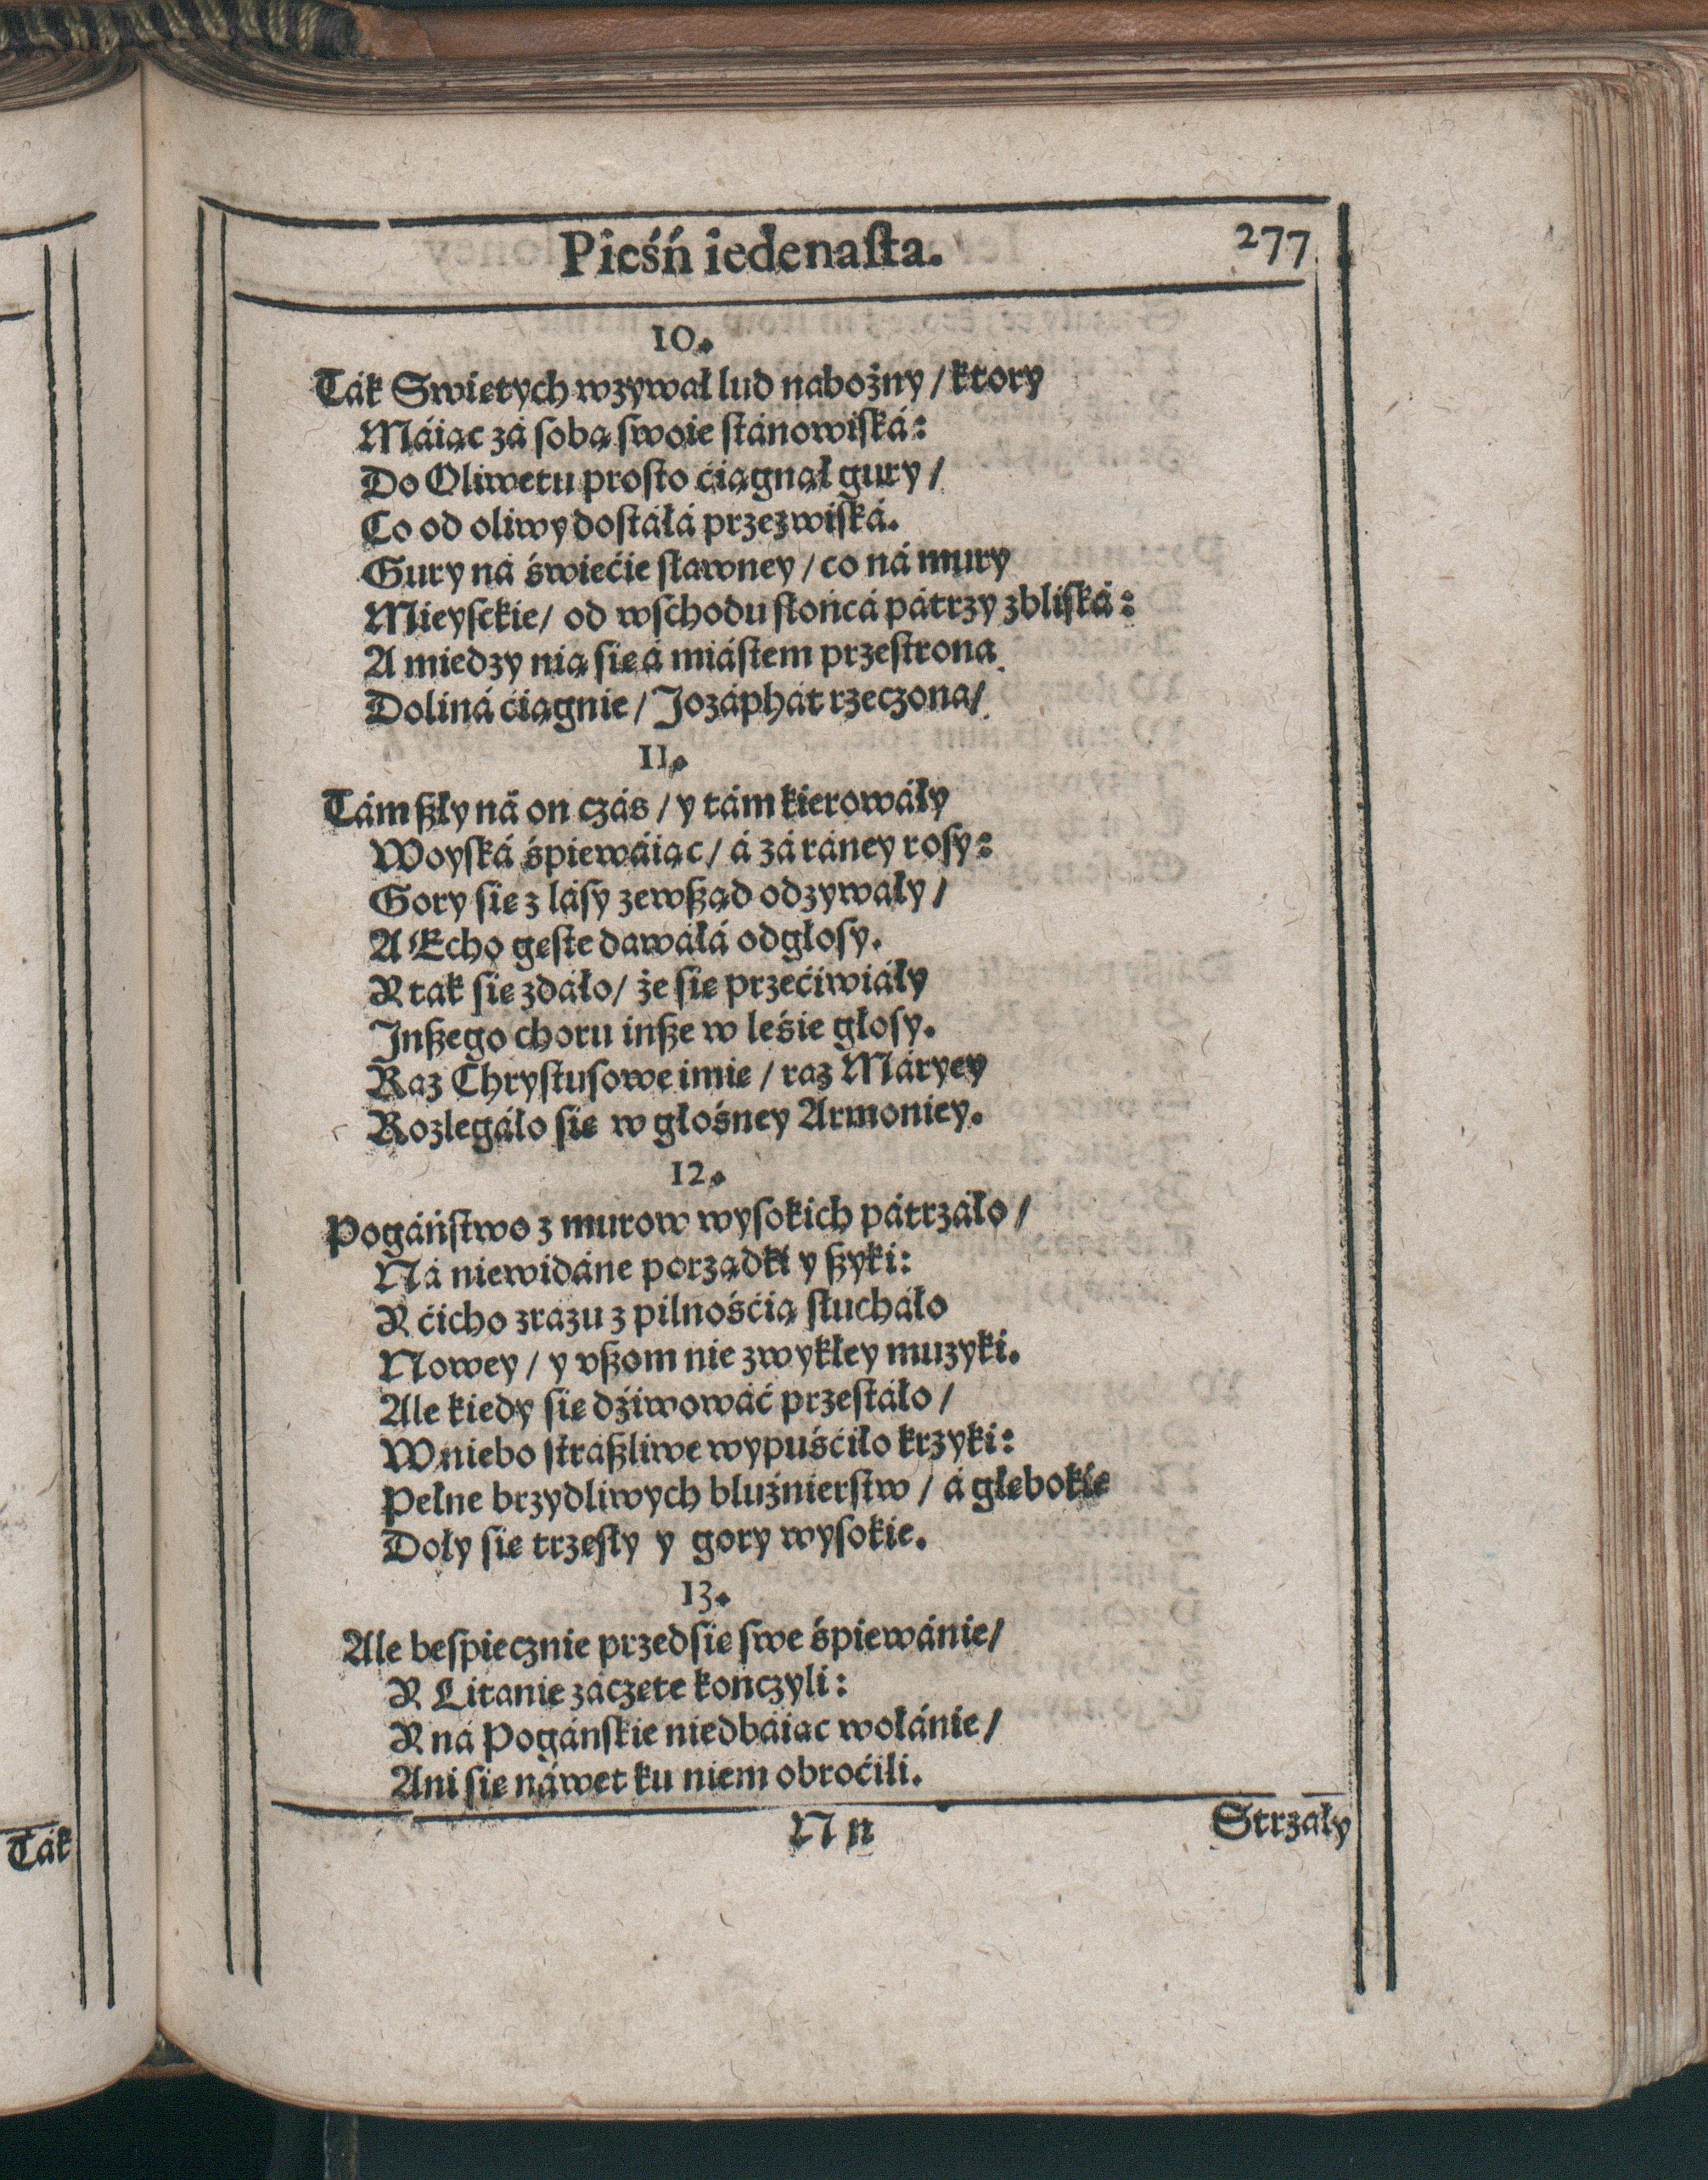 Pieśń iedenaſta.
277
10.
Ták Swiętych wzywał lud nabożny / ktory
Máiąc zá ſobą ſwoie ſtánowiſká:
Do Oliwetu proſto ćiągnął gury /
Co od oliwy doſtáłá przezwiſká.
Gury ná świećie ſławney / co ná mury
Mieyſckie / od wſchodu ſłońcá pátrzy zbliſká:
A miedzy nią ſię á miáſtem przeſtrona
Doliná ćiągnie / Jozáphát rzeczona /
11.
Tám ßły ná on czás / y tám kierowáły
Woyſká śpiewáiąc / á zá ráney roſy:
Gory ſię z láſy zewßąd odzywały /
A Echo gęſte dawáłá odgłoſy.
Y tak ſię zdáło / że ſię przećiwiáły
Jnßego choru inße w leśie głoſy.
Raz Chryſtuſowe imię / raz Máryey
Rozlegáło ſię w głośney Armoniey.
12.
Pogáńſtwo z murow wyſokich pátrzáło /
Ná niewidáne porządki y ßyki:
Y ćicho zrázu z pilnośćią ſłucháło
Nowey / y vßom nie zwykłey muzyki.
Ale kiedy ſię dźiwowáć przeſtáło /
W niebo ſtráßliwe wypuśćiło krzyki:
Pełne brzydliwych bluźnierſtw / á głębokie
Doły ſię trzęſły y gory wyſokie.
13.
Ale beſpiecznie przedſię ſwe śpiewánie /
Y Litanie záczęte kończyli:
Y ná Pogáńſkie niedbáiąc wołánie /
Ani ſię náwet ku niem obroćili.
Nn
Strzały
Ták